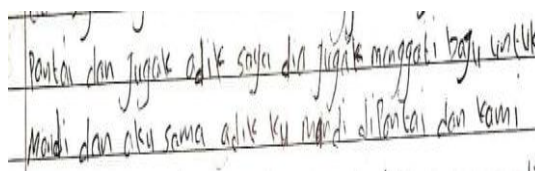 Pantai dan jugak adik saya dia jugak menggati baju untuk
Mandi dan aku sama adik ku mandi dipantai dan kami